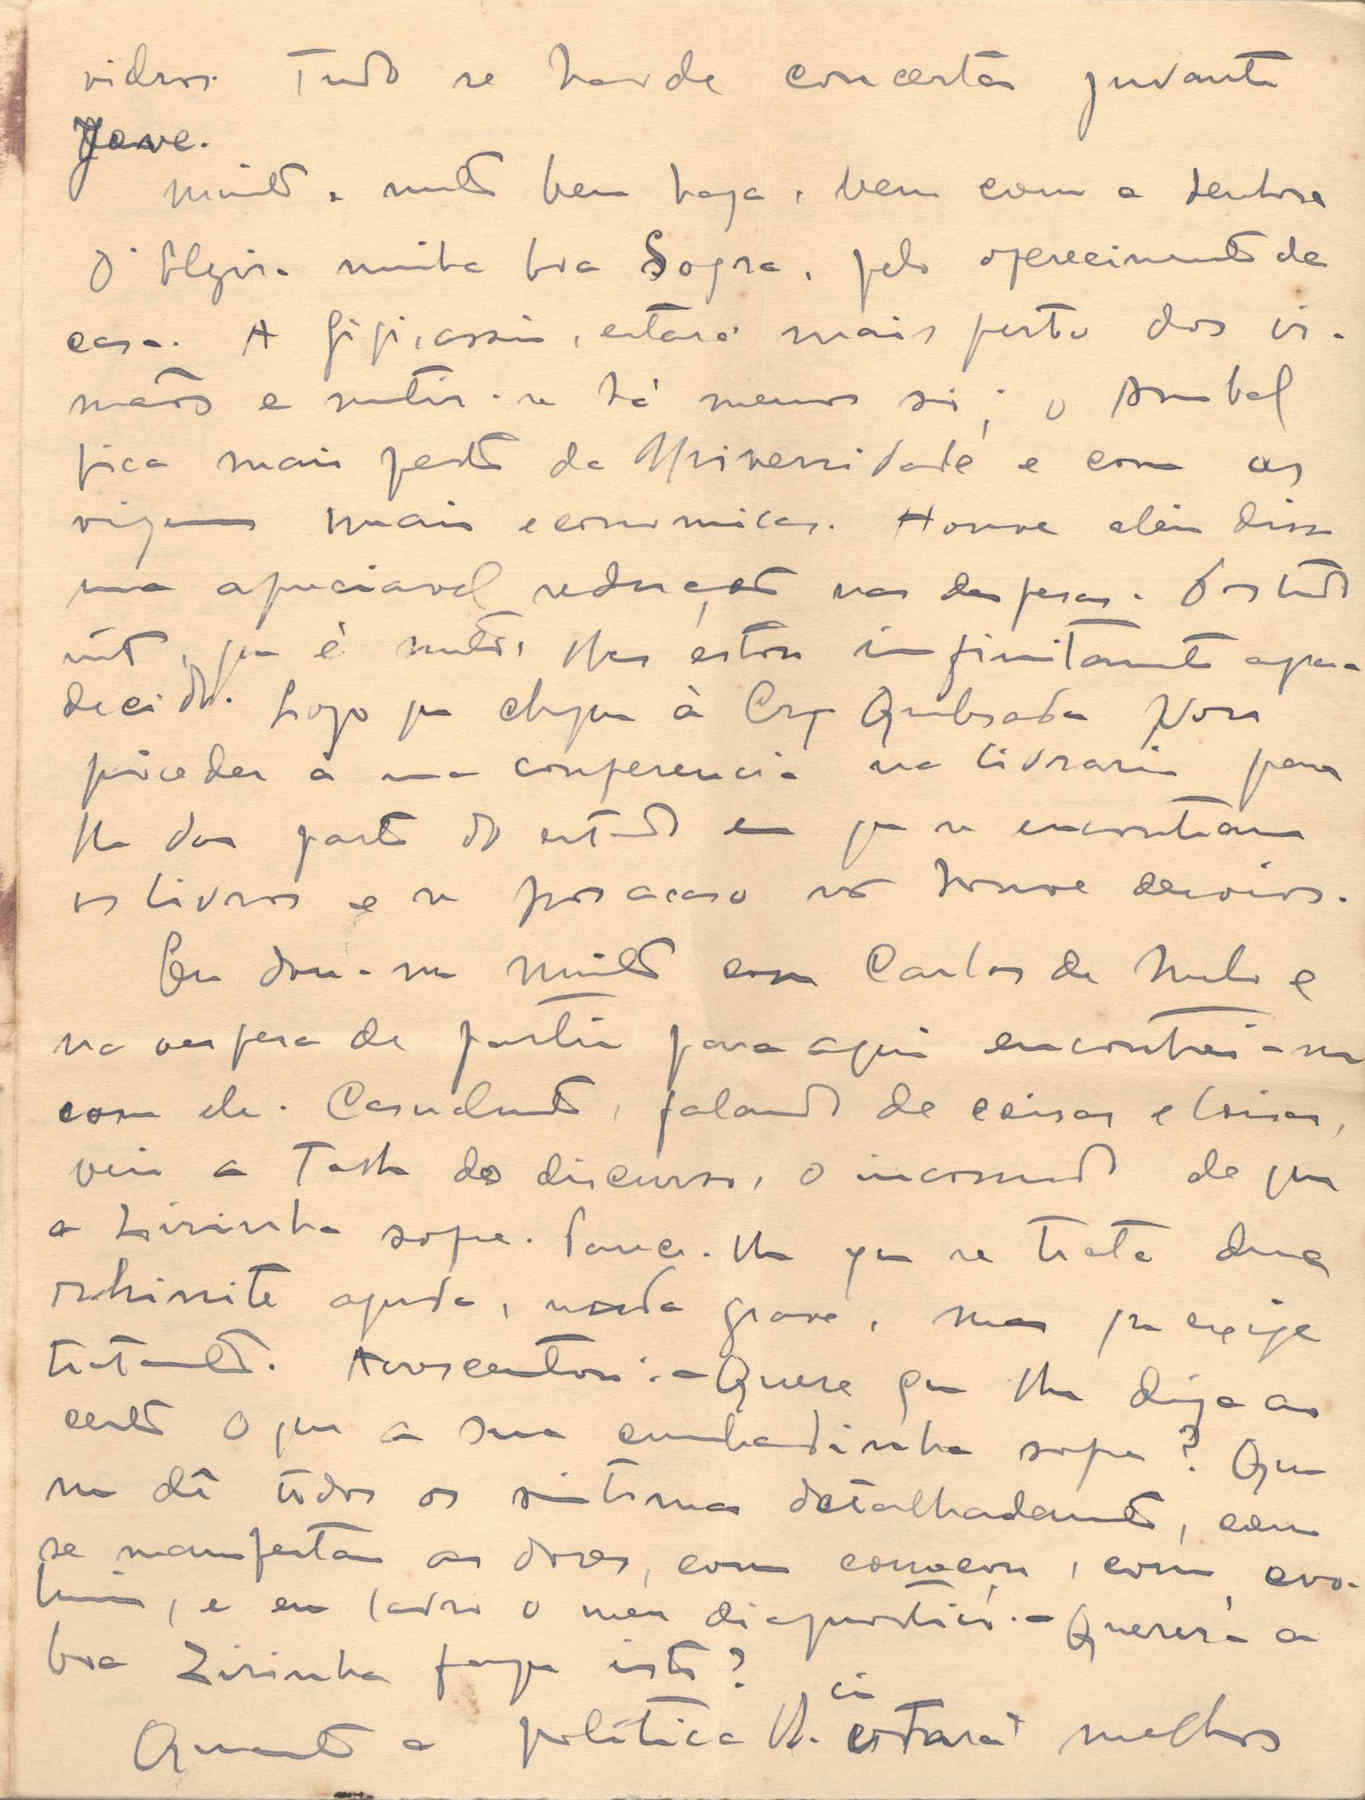 vidros. Tudo se ha-de concertar juvante
Jove.
Muito, muito bem haja, bem com a senhora
D. Elzira minha boa Sogra, pelo oferecimento da
casa. A Gigi, assim, estará mais perto dos ir-
mãos e sentir-se há menos só; o Anibal
fica mais perto da Universidade e com as
viagens mais economicas. Houve alêm disso
uma apreciavel redução nas despesas. Por tudo
isto, que é muito, lhes estou infinitamente agra-
decido. Logo que chegue à Cruz Quebrada vou
proceder a uma conferencia na livraria para
lhe dar parte do estado em que se encontram
os livros e se por acaso não houve desvios.
Eu dou-me muito com Carlos de Melo e
na vespera de partir para aqui encontrei-me
com ele. Casualmente, falando de coisas e loisas,
veio a  do discurso, o incomodo de que
a Zirinha sofre. Parece-lhe que se trata duma
rhinite aguda, nada grave, mas que exige
tratamento. Acrescentou: - Quere que lhe diga ao
certo o que a sua cunhadinha sofre? Que
me dê todos os sintomas detalhadamente, como
se manifestam as dores, como começou, como evo-
luiu, e eu lavro o meu diagnostico. - Quererá a
boa Zirinha fazer isto?
Quanto a politica V. cá estará melhor